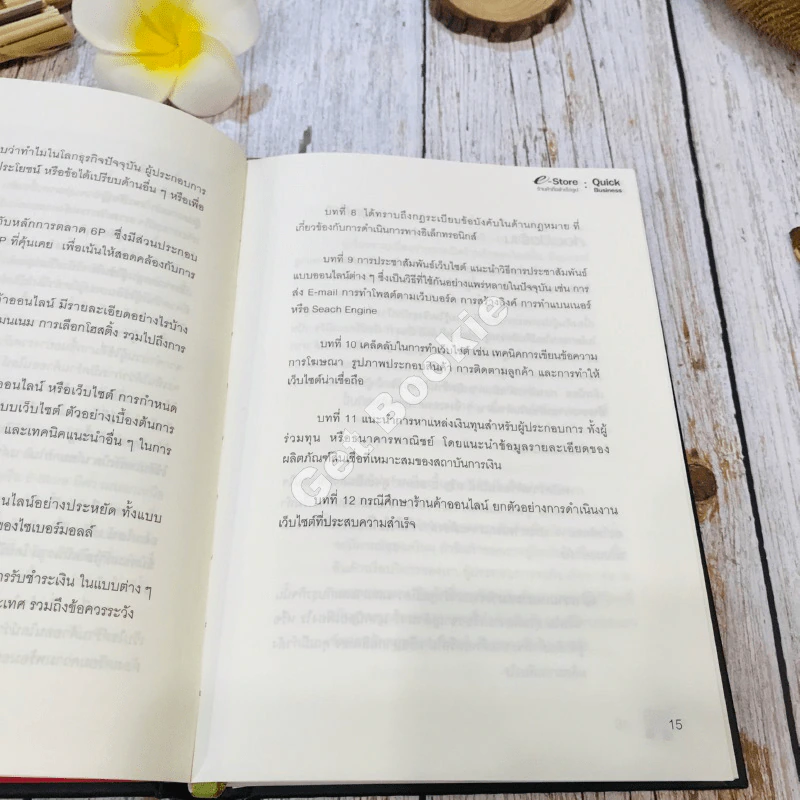 บว่าทำไมในโลกธุรกิจปัจจุบัน ผู้ประกอบการ
ประโยชน์ หรือข้อได้เปรียบด้านอื่น ๆ หรือเพื่อ
ับหลักการตลาด 6P ซึ่งมีส่วนประกอบ
P ที่คุ้นเคย เพื่อเน้นให้สอดคล้องกับการ
้าออนไลน์ มีรายละเอียดอย่างไรบ้าง
มนเนม การเลือกโฮสติ้ง รวมไปถึงการ
ออนไลน์ หรือเว็บไซต์ การกำหนด
แบบเว็บไซต์ ตัวอย่างเบื้องต้นการ
และเทคนิคแนะนำอื่น ๆ ในการ
นไลน์อย่างประหยัด ทั้งแบบ
ของไซเบอร์มอลล์
การรับชำระเงิน ในแบบต่าง ๆ
ะเทศ รวมถึงข้อควรระวัง
e-Store : Quick
ร้านค้าทันสำเร็จรูป Business
บทที่ 8 ได้ทราบถึงกฎระเบียบข้อบังคับในด้านกฎหมาย ที่
เกี่ยวข้องกับการดำเนินการทางอิเล็กทรอนิกส์
บทที่ 9 การประชาสัมพันธ์เว็บไซต์ แนะนำวิธีการประชาสัมพันธ์
แบบออนไลน์ต่าง ๆ ซึ่งเป็นวิธีที่ใช้กันอย่างแพร่หลายในปัจจุบัน เช่น การ
ส่ง E-mail การทำโพสต์ตามเว็บบอร์ด การสร้างลิงค์ การทำแบนเนอร์
หรือ Seach Engine
บทที่ 10 เคล็ดลับในการทำเว็บไซต์ เช่น เทคนิคการเขียนข้อความ
การโฆษณา รูปภาพประกอบสินค้า การติดตามลูกค้า และการทำให้
เว็บไซต์น่าเชื่อถือ
บทที่ 11 แนะนำการหาแหล่งเงินทุนสำหรับผู้ประกอบการ ทั้งผู้
ร่วมทุน หรือธนาคารพาณิชย์ โดยแนะนำข้อมูลรายละเอียดของ
ผลิตภัณฑ์สินเชื่อที่เหมาะสมของสถาบันการเงิน
บทที่ 12 กรณีศึกษาร้านค้าออนไลน์ ยกตัวอย่างการดำเนินงาน
เว็บไซต์ที่ประสบความสำเร็จ
Get Bookie
Get Bookie
15